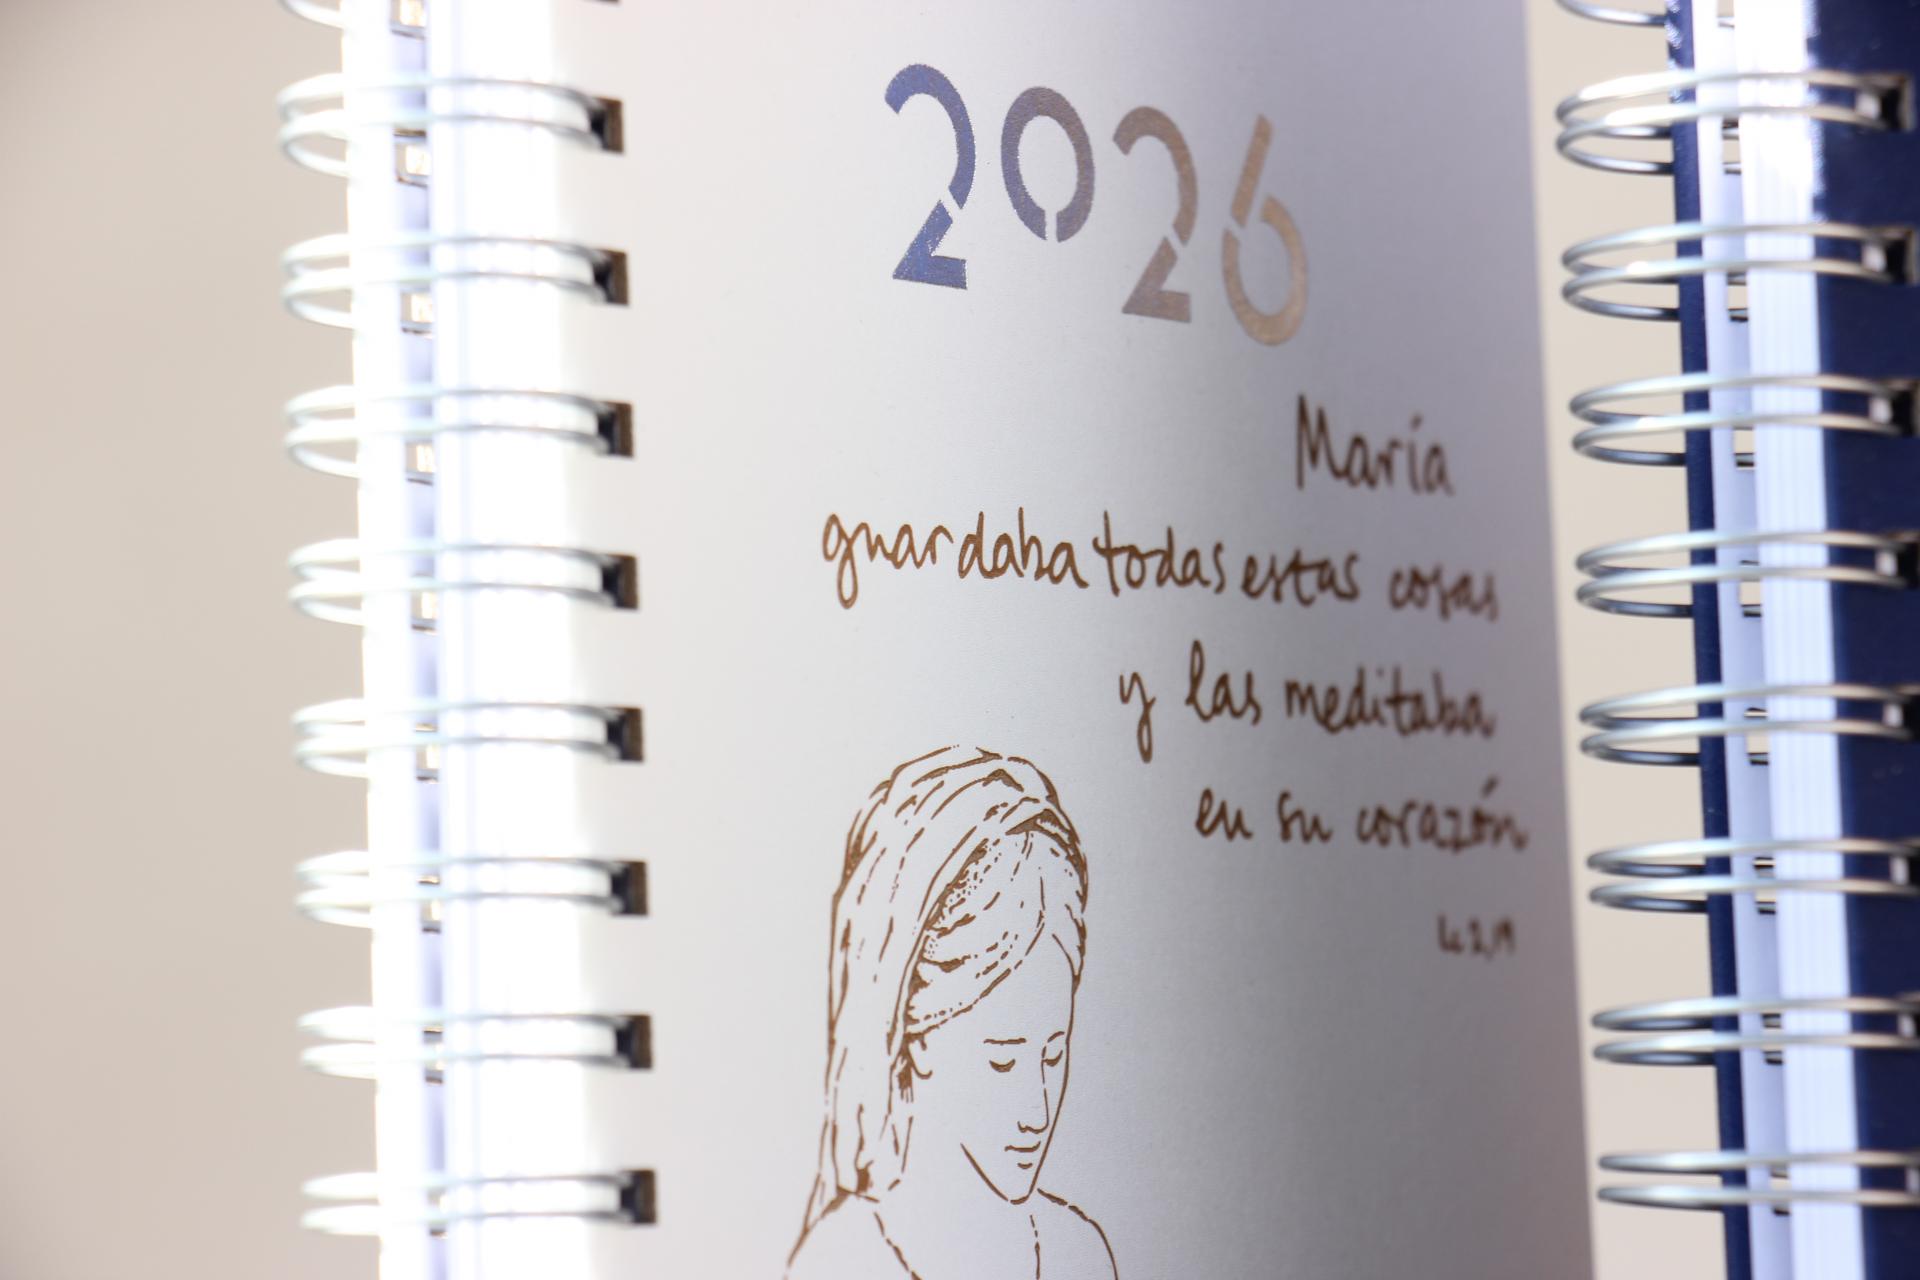 2026
María
guardaba todas estas cosas
y las meditaba
en su corazón
Lc 2,19